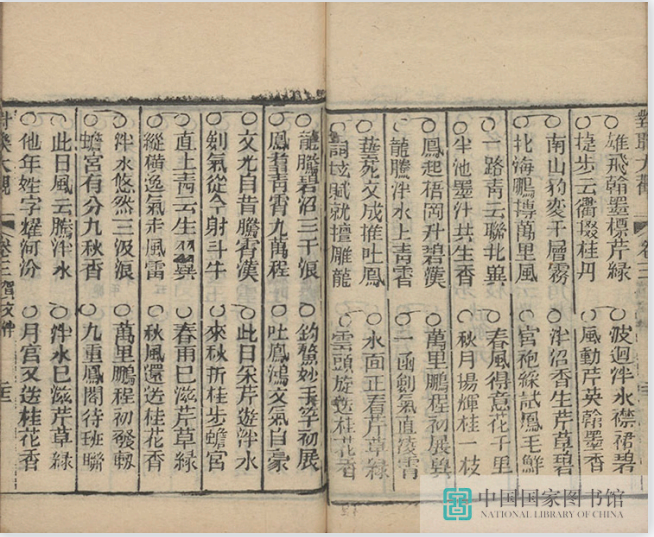 雄飛翰墨標芹綠
波迴泮水襟裙碧
捷步云衢掇桂丹
風動芹英翰墨香
南山豹变千層霧
泮沼香生芹草碧
北海鵬博萬里風
宮袍綵試鳳毛鮮
一路青云聯北翼
春風得意花千里
半池墨汁共生香
秋月揚輝桂一枝
鳳起梧岡升碧漢
萬里鵬程初展翼
龍騰泮水上青霄
一函劍氣直凌霄
文成推吐鳳
水面正看芹草綠
詞賦就擅雕龍
雲頭旋送桂花香
龍騰碧沼三千浪
釣鰲妙手竿初展
鳳翥青霄九萬程
吐鳳鴻文氣自豪
文光自昔騰霄漢
此日采芹遊泮水
劍氣從今射斗牛
來秋折桂步蟾宮
直上青云生翼
春雨已滋芹草綠
縱橫逸氣走風雷
秋風還送桂花香
泮水悠然三汲浪
萬里鵬程初發軔
蟾宮有分九秋香
九重鳳閣待班聯
此日風云騰泮水
泮水已滋芹草綠
他年姓字耀河汾
月宮又送桂花香
對聯大觀
卷三賀
中国国家图书馆
NATIONAL LIBRARY OF CHINA